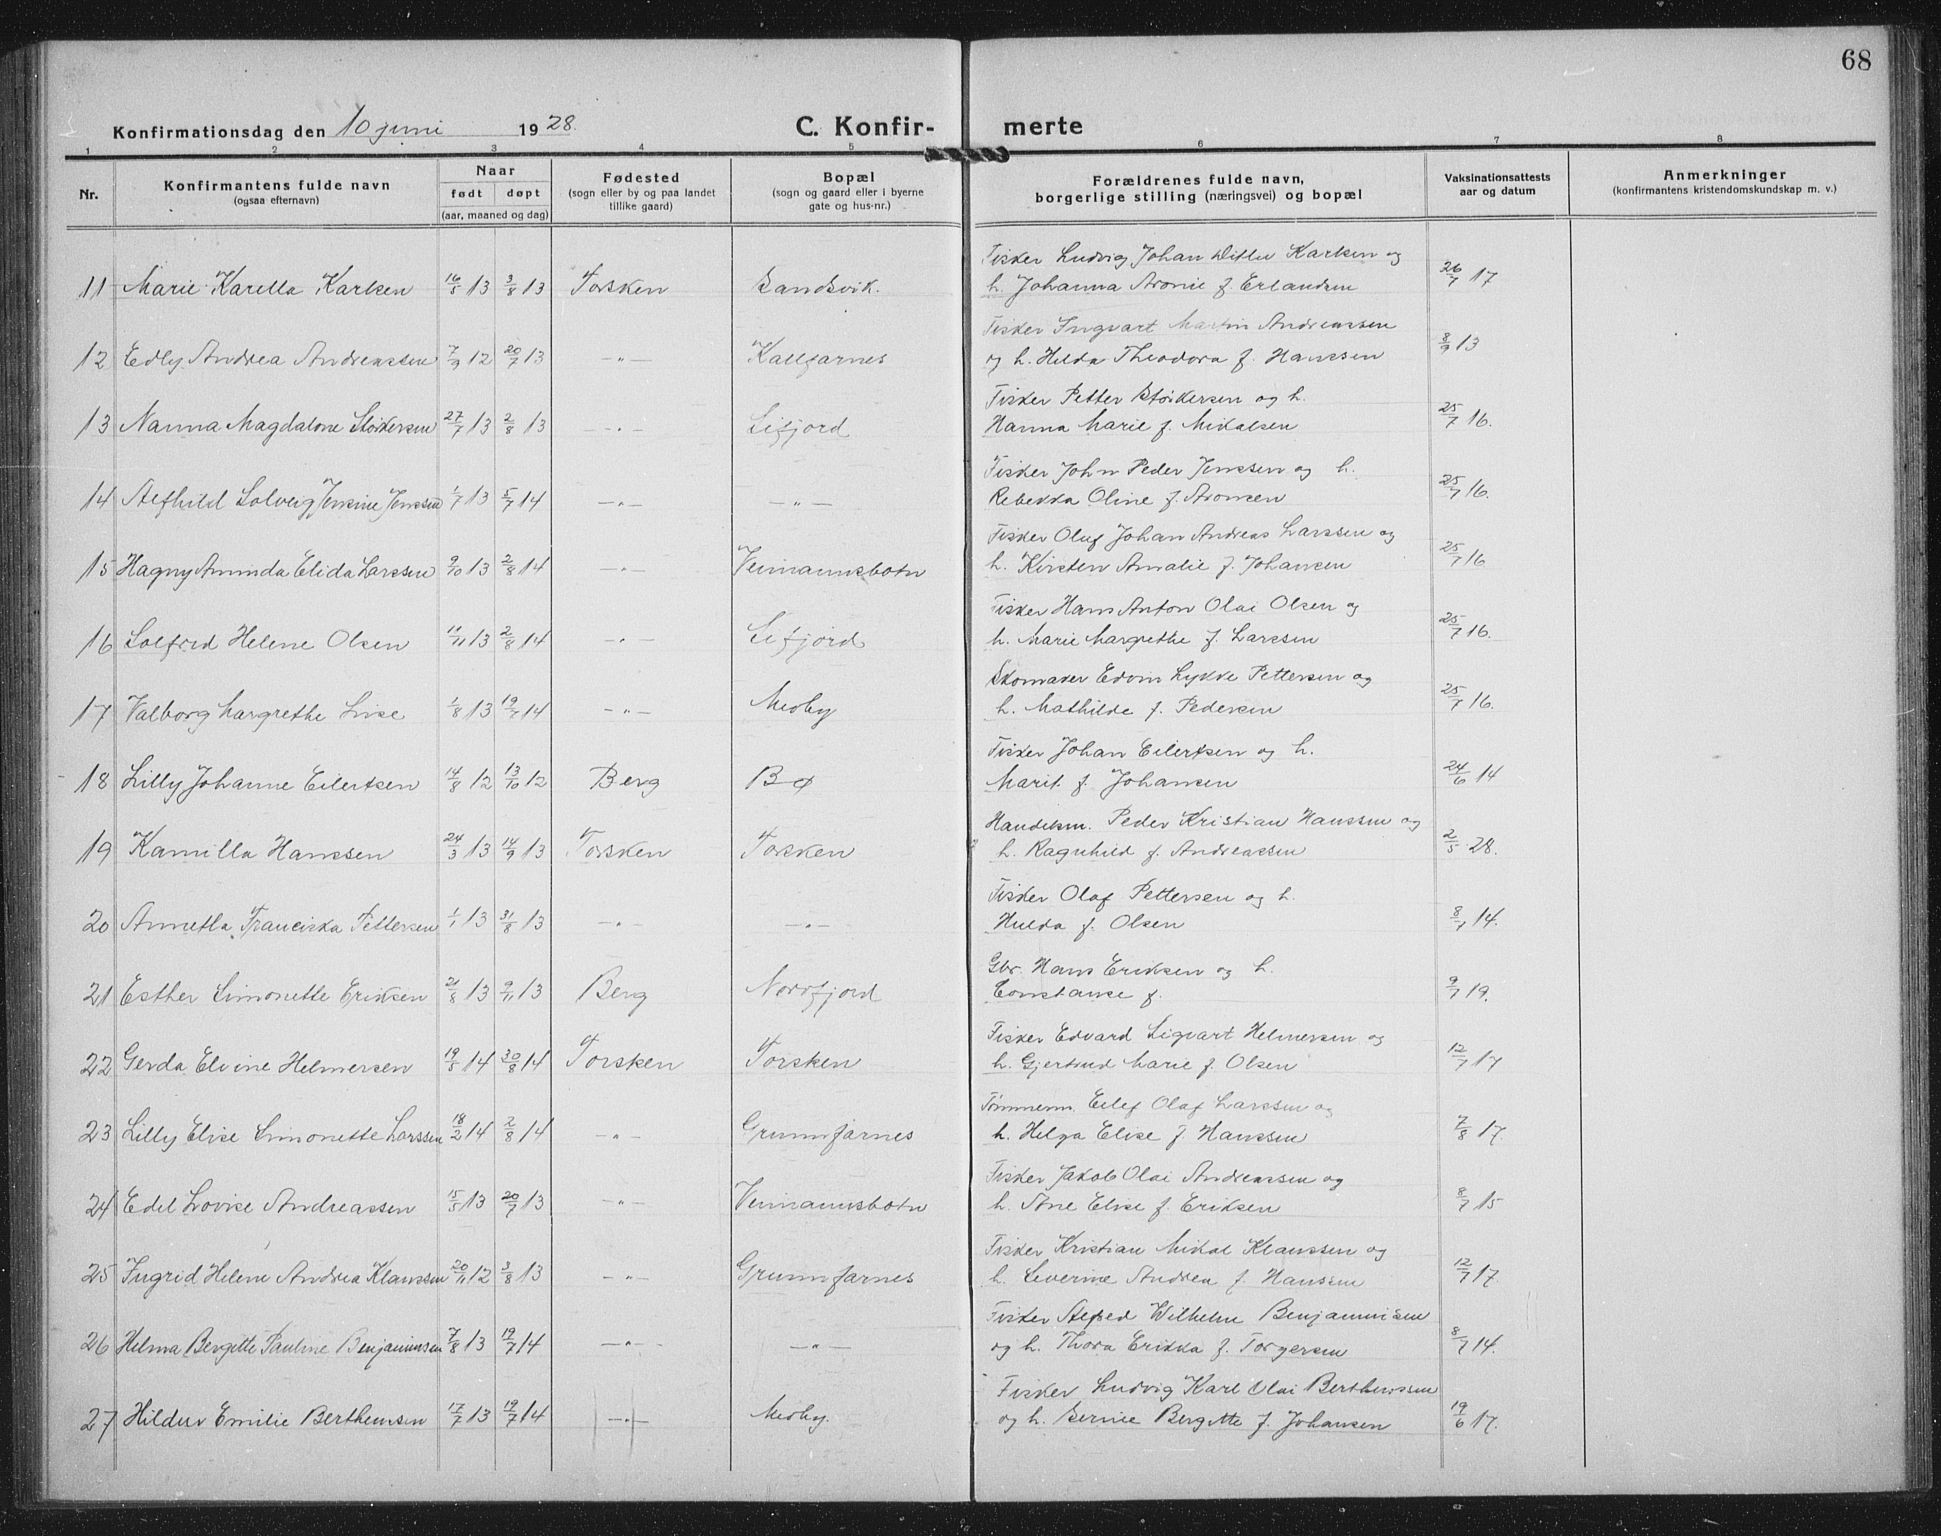 68
Konfirmationsdag den 10 juni 1928.
C. Konfir- merte
1 2 3 4 5 6 7 8
Nr.
Konfirmantens fulde navn
(ogsaa efternavn)
Naar
født døpt
(aar, maaned og dag)
Fødested
(sogn eller by og paa landet
tillike gaard)
Bopæl
(sogn og gaard eller i byerne
gate og hus-nr.)
Forældrenes fulde navn,
borgerlige stilling (næringsvei) og bopæl
Vaksinationsattests
aar og datum
Anmerkninger
(konfirmantens kristendomskundskap m. v.)
Fisker Ludvig Johan Ditlev Karlsen og
11 Marie Karella Karlsen 16/5 13 3/8 13 Torsken Sandsvik. h. Johanna Aronie f. Erlandsen 26/7 17
Fisker Ingvart Martin Andreassen
12 Edly Andrea Andreassen 7/9 12 20/7 13 -"- Kalfarnes og h. Hilda Theodora f. Hanssen 8/9 13
Fisker Petter Størkersen og h.
13 Nanna Magdalone Størkersen 27/7 13 2/8 13 -"- Lifjord Hanna Marie f. Mikalsen 25/7 16.
Fisker John Peder Jenssen og h.
14 Alfhild Solveig Jensine Jenssen 1/7 13 5/7 14 -"- -"- Rebekka Oline f. Aronsen 25/7 16.
Fisker Oluf Johan Andreas Larssen og
15 Hagny Amunda Elida Larssen 9/10 13 2/8 14 -"- Veimannsbotn h. Kirsten Amalie f. Johansen 25/7 16
Fisker Hans Anton Olai Olsen og
16 Solfrid Helene Olsen 11/11 13 2/8 14 -"- Lifjord h. Marie Margrethe f. Larssen 25/7 16.
Skomaker Edvin Lykke Pettersen og
17 Valborg Margrethe Lise 1/8 13 19/7 14 -"- Medby h. Mathilde f. Pedersen 25/7 16.
Fisker Johan Eilertsen og h.
18 Lilly Johanne Eilertsen 14/8 12 13/10 12 Berg Bø Marit f. Johansen 24/6 14
Handelsm. Peder Kristian Hanssen og
19 Kamilla Hanssen 24/3 13 14/9 13 Torsken Torsken h. Ragnhild f. Andreassen 2/5 28.
Fisker Olaf Pettersen og h.
20 Annetta Franciska Pettersen 1/1 13 31/8 13 -"- -"- Hulda f. Olsen 8/7 14.
Gbr. Hans Eriksen og h.
21 Esther Simonette Eriksen 21/8 13 9/11 13 Berg Nordfjord Constanse f. 9/7 19.
Fisker Edvard Sigvart Helmersen og
22 Gerda Elvine Helmersen 19/5 14 30/8 14 Torsken Torsken h. Gjertrud Marie f. Olsen 12/7 17
Tømmerm. Eilef Olaf Larssen og
23 Lilly Elise Simonette Larssen 18/2 14 2/8 14 -"- Grunnfarnes h. Helga Elise f. Hanssen 7/8 17.
Fisker Jakob Olai Andreassen og
24 Edel Lovise Andreassen 15/5 13 20/7 13 -"- Veimannsbotn h. Ane Elise f. Eriksen 8/7 15
Fisker Kristian Mikal Klaussen og
25 Ingrid Helene Andrea Klaussen 20/11 12 3/8 13 -"- Grunnfarnes h. Severine Andrea f. Hanssen 12/7 17.
Fisker Alfred Wilhelm Benjaminsen
26 Helma Bergitte Pauline Benjaminsen 7/8 13 19/7 14 -"- -"- og h. Thora Erikka f. Torgersen 8/7 14.
Fisker Ludvig Karl Olai Berthinssen
27 Hildur Emilie Berthinsen 17/7 13 19/7 14 -"- Medby. og h. Bernie Bergitte f. Johansen 19/6 17.